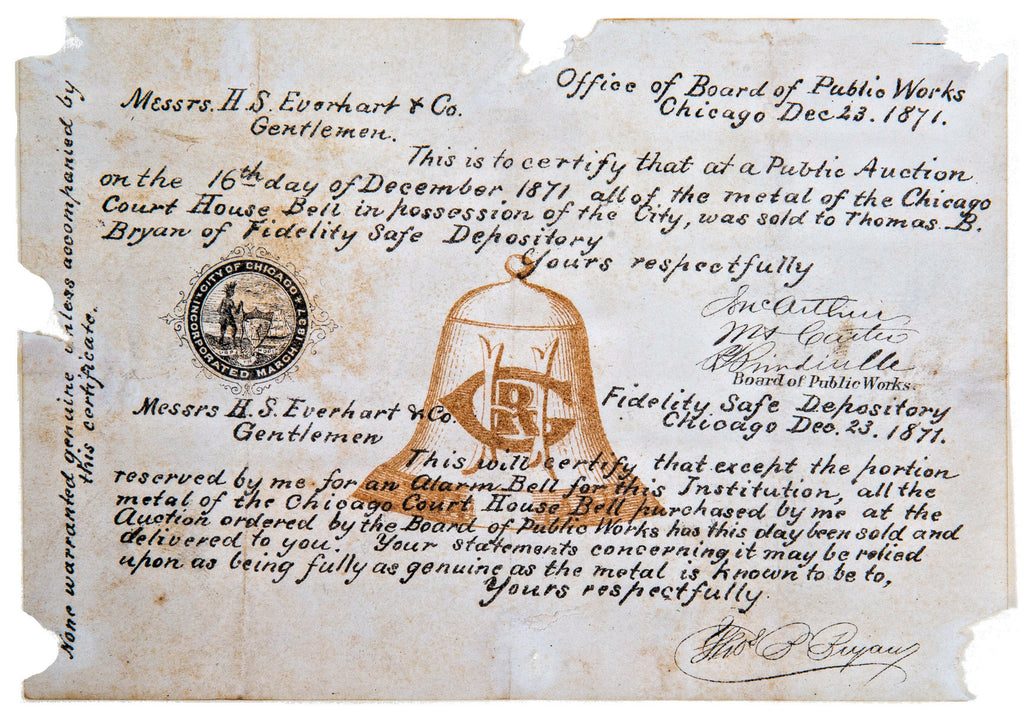 Office of Board of Public Works
Chicago Dec 23. 1871.
Messrs. H. S. Everhart & Co.
Gentlemen.
This is to certify that at a Public Auction
on the 16th day of December 1871 all of the metal of the Chicago
Court House Bell in possession of the City, was sold to Thomas B.
Bryan of Fidelity Safe Depository
Yours respectfully
CITY OF CHICAGO
INCORPORATED MARCH 1837
Board of Public Works.
Fidelity Safe Depository
Chicago Dec. 23. 1871.
Messrs H. S. Everhart & Co.
Gentlemen
This will certify that except the portion
reserved by me for an Alarm Bell for this Institution, all the
metal of the Chicago Court House Bell purchased by me at the
Auction ordered by the Board of Public Works has this day been sold and
delivered to you. Your statements concerning it may be relied
upon as being fully as genuine as the metal is known to be to,
Yours respectfully
Thos B Bryan
None warranted genuine unless accompanied by
this certificate.